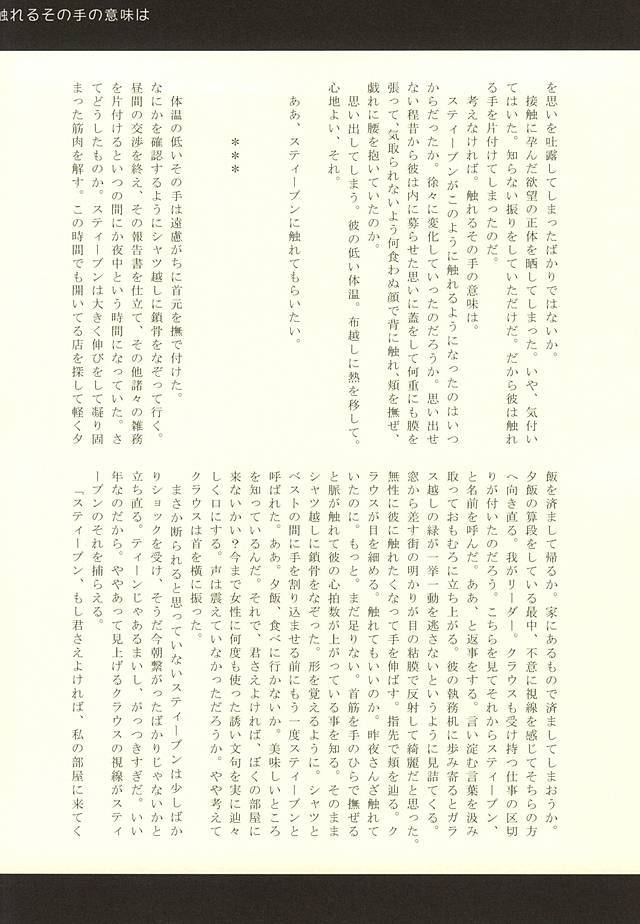 触れるその手の意味は
を思いを吐露してしまったばかりではないか。
接触に孕んだ欲望の正体を晒してしまった。いや、気付い
てはいた。知らない振りをしていただけだ。だから彼は触れ
る手を片付けてしまったのだ。
考えなければ。触れるその手の意味は。
スティーブンがこのように触れるようになったのはいつ
からだったか。徐々に変化していったのだろうか。思い出せ
ない程昔から彼は内に募らせた思いに蓋をして何重にも膜を
張って、気取られないよう何食わぬ顔で背に触れ、頬を撫ぜ、
戯れに腰を抱いていたのか。
思い出してしまう。彼の低い体温。布越しに熱を移して。
心地よい、それ。
ああ、スティーブンに触れてもらいたい。
＊＊＊
体温の低いその手は遠慮がちに首元を撫で付けた。
なにかを確認するようにシャツ越しに鎖骨をなぞって行く。
昼間の交渉を終え、その報告書を仕立て、その他諸々の雑務
を片付けるといつの間にか夜中という時間になっていた。さ
てどうしたものか。スティーブンは大きく伸びをして凝り固
まった筋肉を解す。この時間でも開いてる店を探して軽く夕
飯を済まして帰るか。家にあるもので済ましてしまおうか。
夕飯の算段をしている最中、不意に視線を感じてそちらの方
へ向き直る。我がリーダー。クラウスも受け持つ仕事の区切
りが付いたのだろう。こちらを見てそれからスティーブン、
と名前を呼んだ。ああ、と返事をする。言い淀む言葉を汲み
取っておもむろに立ち上がる。彼の執務机に歩み寄るとガラ
ス越しの緑が一挙一動を逃さないというように見詰てくる。
窓から差す街の明かりが目の粘膜で反射して綺麗だと思った。
無性に彼に触れたくなって手を伸ばす。指先で頬を辿る。ク
ラウスが目を細める。触れてもいいのか。昨夜さんざ触れて
いたのに。もっと。まだ足りない。首筋を手のひらで撫ぜる
と脈が触れて彼の心拍数が上がっている事を知る。そのまま
シャツ越しに鎖骨をなぞった。形を覚えるように。シャツと
ベストの間に手を割り込ませる前にもう一度スティーブンと
呼ばれた。ああ。夕飯、食べに行かないか。美味しいところ
を知っているんだ。それで、君さえよければ、ぼくの部屋に
来ないかい？今まで女性に何度も使った誘い文句を実に辿々
しく口にする。声は震えていなかっただろうか。やや考えて
クラウスは首を横に振った。
まさか断られると思っていないスティーブンは少しばか
りショックを受け、そうだ今朝繋がったばかりじゃないかと
立ち直る。ティーンじゃあるまいし、がっつきすぎだ。いい
年なのだから。ややあって見上げるクラウスの視線がスティ
ーブンのそれを捕らえる。
「スティーブン、もし君さえよければ、私の部屋に来てく